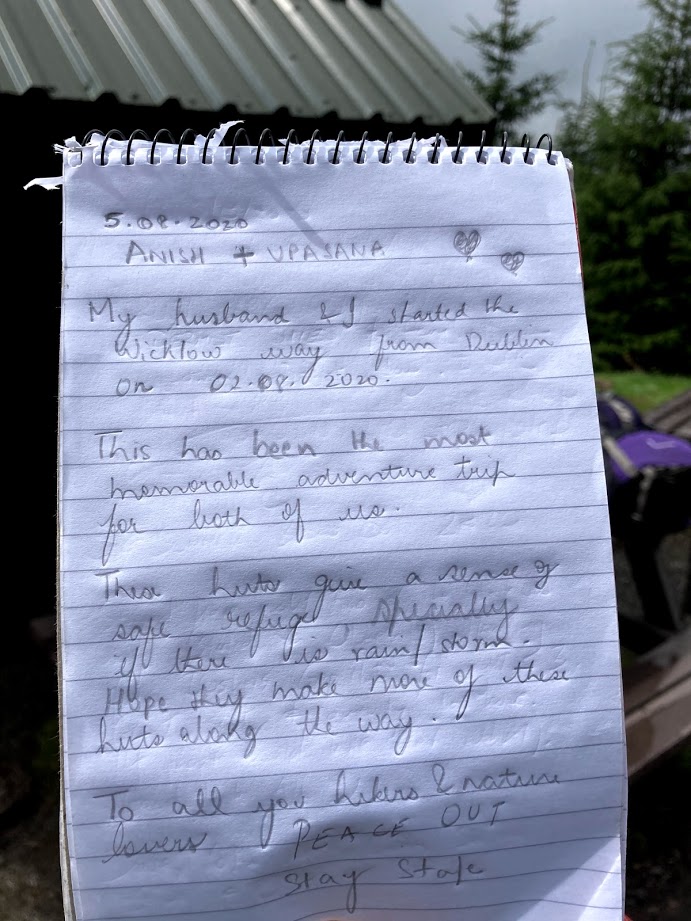 5.08.2020
ANISH + UPASANA
My husband & I started the
Wicklow way from Dublin
on 02.08.2020.
This has been the most
memorable adventure trip
for both of us.
These huts give a sense of
safe refuge, specially
if there is rain/storm.
Hope they make more of these
huts along the way.
To all you hikers & nature
lovers PEACE OUT
Stay Stafe